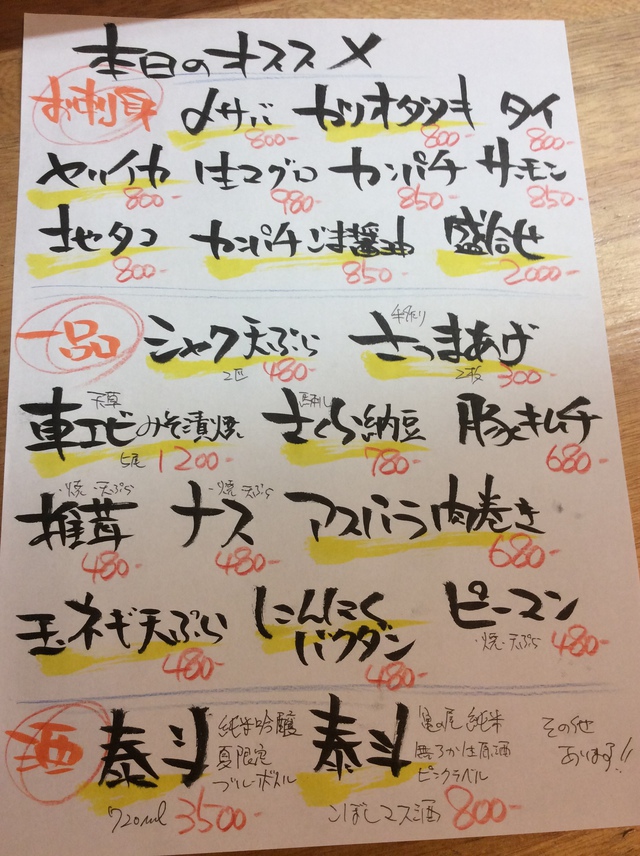 本日のオススメ
お刺身 〆サバ 800- カツオタタキ 800- タイ 800-
ヤリイカ 800- 生マグロ 980- カンパチ 850- サーモン 850-
地タコ 800- カンパチごま醤油 850- 盛合せ 2000-
一品 シャク天ぷら 2匹 480- 手作り さつまあげ 2枚 300-
天草 車エビみそ漬焼 5尾 1200- 馬刺し さくら納豆 780- 豚キムチ 680-
椎茸 ・焼・天ぷら 480- ナス ・焼・天ぷら 480- アスパラ肉巻き 680-
玉ネギ天ぷら 480- にんにくバクダン 480- ピーマン ・焼・天ぷら 480-
酒 泰斗 純米吟醸 夏限定 ブルーボトル 720ml 3500-
泰斗 亀の尾 純米 無ろか生原酒 ピンクラベル こぼしマス酒 800-
その他あります!!